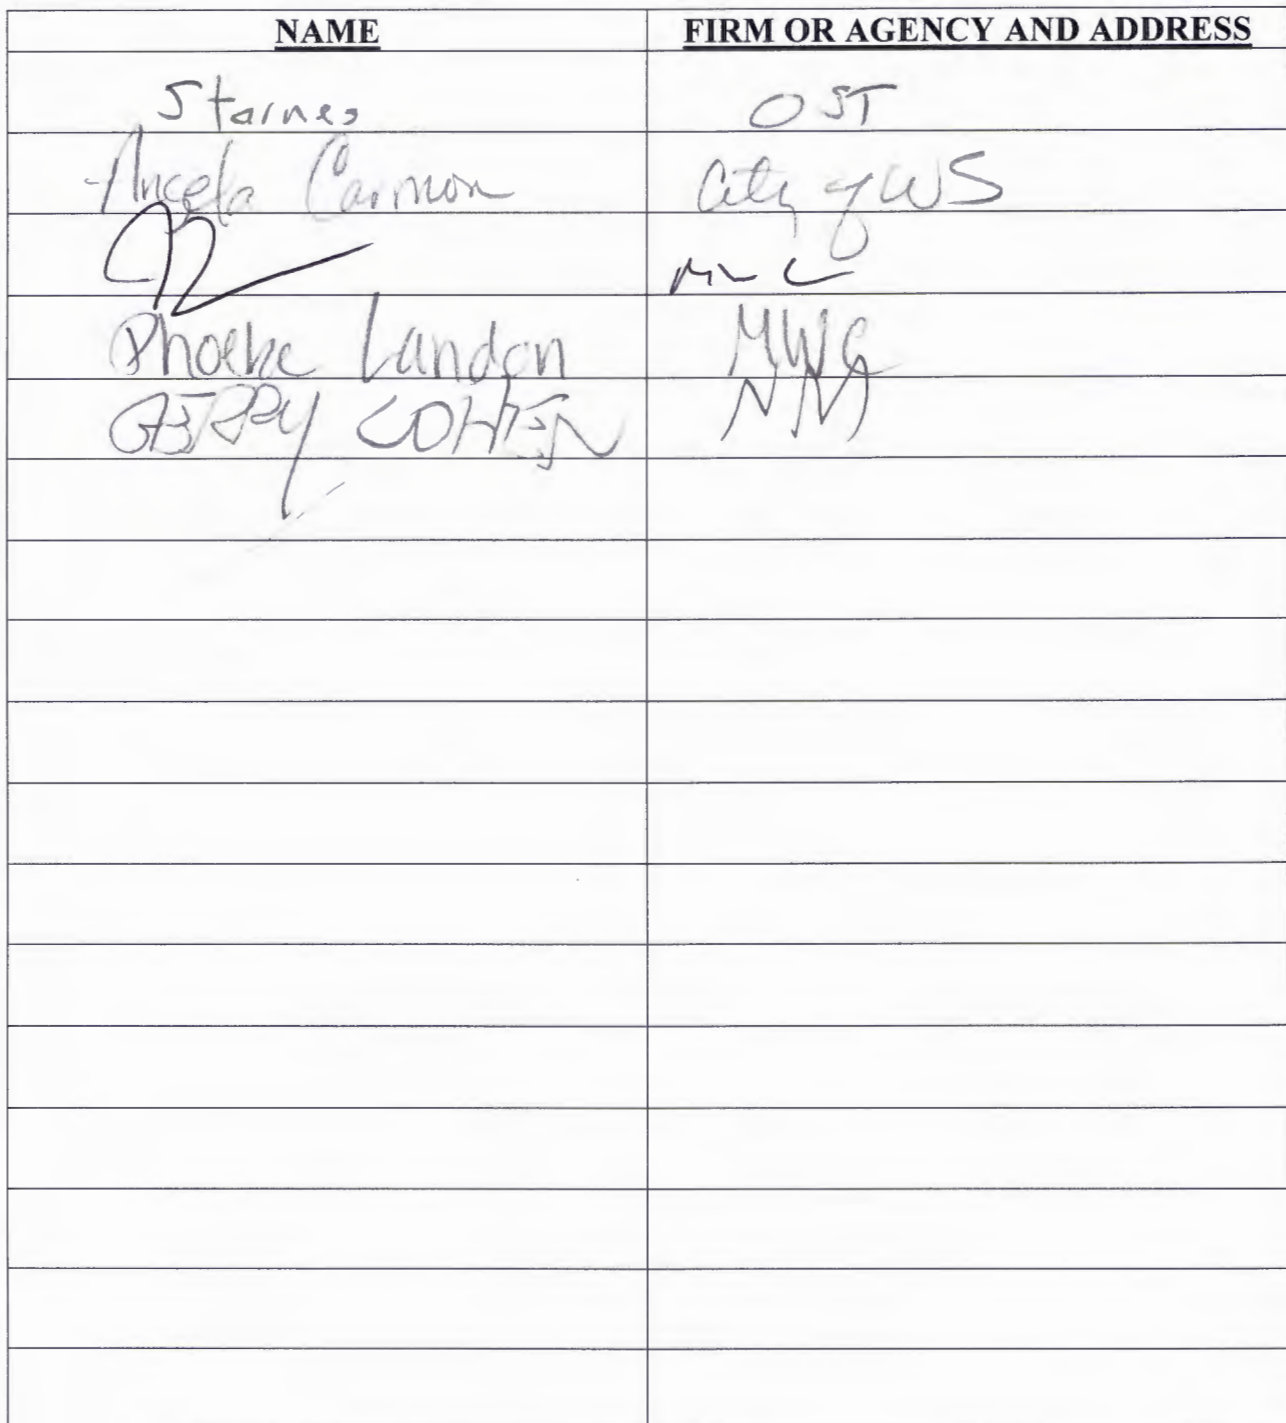 NAME FIRM OR AGENCY AND ADDRESS
Starnes OST
Angela Carmon City of WS
Phoebe Landon MWC
GERRY COHEN NM